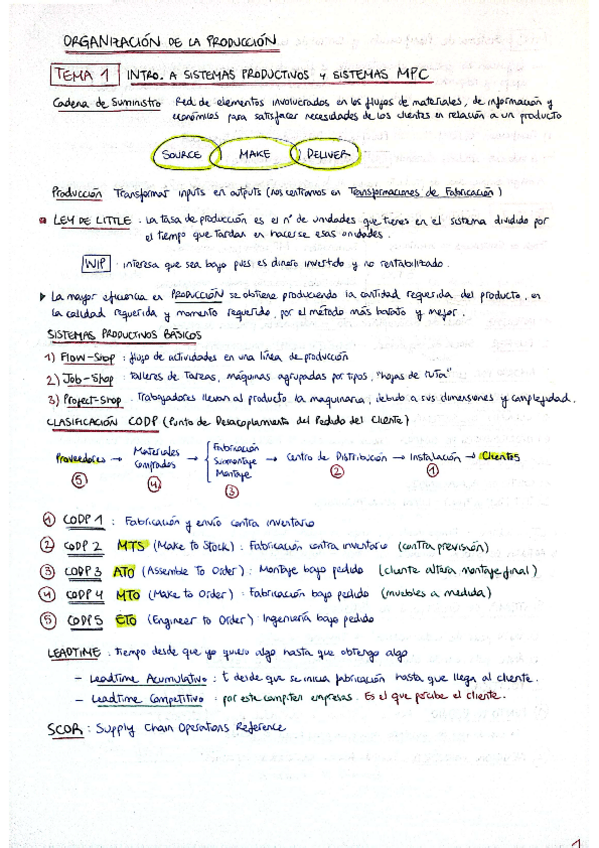 ORGANIZACIÓN DE LA PRODUCCIÓN
TEMA 1 INTRO. A SISTEMAS PRODUCTIVOS Y SISTEMAS MPC
Cadena de Suministro Red de elementos involucrados en los flujos de materiales, de información y
económicos para satisfacer necesidades de los clientes en relación a un producto
SOURCE MAKE DELIVER
Producción Transformar inputs en outputs (nos centramos en Transformaciones de Fabricación)
LEY DE LITTLE. La tasa de producción es el nº de unidades que tienes en el sistema dividido por
el tiempo que tardan en hacerse esas unidades.
WIP . interesa que sea bajo pues es dinero invertido y no rentabilizado.
La mayor eficiencia en PRODUCCIÓN se obtiene produciendo la cantidad requerida del producto, en
la calidad requerida y momento requerido, por el método más barato y mejor.
SISTEMAS PRODUCTIVOS BÁSICOS
1) Flow-Shop : flujo de actividades en una línea de producción
2) Job-Shop : talleres de Tareas, máquinas agrupadas por tipos, "hojas de ruta"
3) Project-Shop . Trabajadores llevan al producto la maquinaria, debido a sus dimensiones y complejidad.
CLASIFICACIÓN CODP (Punto de Desacoplamiento del Pedido del Cliente)
Proveedores → Materiales Comprados → Fabricación Submontaje Montaje → Centro de Distribución → Instalación → Clientes
5 4 3 2 1
1 CODP 1 : Fabricación y envío contra inventario
2 CODP 2 MTS (Make to Stock) : Fabricación contra inventario (contra previsión)
3 CODP 3 ATO (Assemble To Order) : Montaje bajo pedido (cliente altera montaje final)
4 CODP 4 MTO (Make to Order) : Fabricación bajo pedido (muebles a medida)
5 CODP 5 ETO (Engineer to Order) Ingeniería bajo pedido
LEADTIME . tiempo desde que yo quiero algo hasta que obtengo algo
- Leadtime Acumulativo : t desde que se inicia fabricación hasta que llega al cliente.
- Leadtime Competitivo : por este compiten empresas. Es el que percibe el cliente.
SCOR : Supply Chain Operations Reference
1